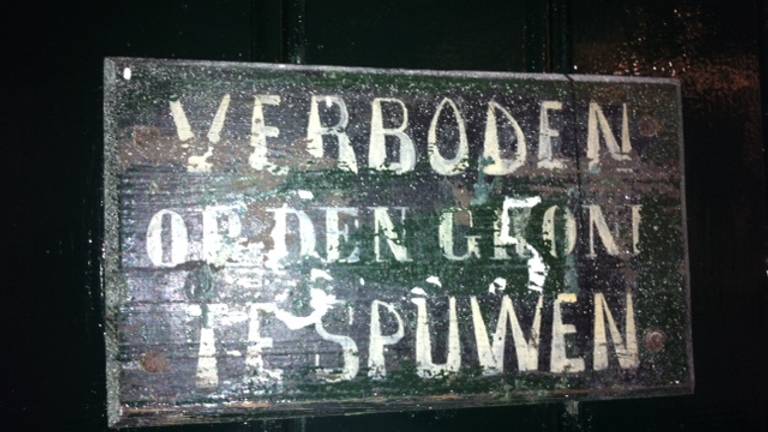 VERBODEN
OP DEN GROND
TE SPUWEN